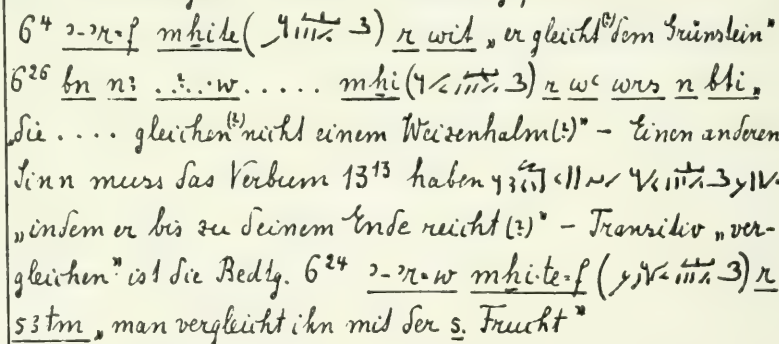 6⁴ ꜣ-ꜣr=f mhite ( 3) r wit „er gleicht(?) dem Grünstein"
6²⁶ bn nꜣ ..?..w ..... mhi ( 3) r wꜥ wrs n bti „
„die .... gleichen(?) nicht einem Weizenhalm(?)" – Einen anderen
Sinn muss das Verbum 13¹³ haben
„indem er bis zu deinem Ende reicht(?)" – Transitiv „ver-
gleichen" ist die Bedtg. 6²⁴ ꜣ-ꜣr=w mhi·te=f ( 3) r
sꜣtm „man vergleicht ihn mit der s. Frucht"